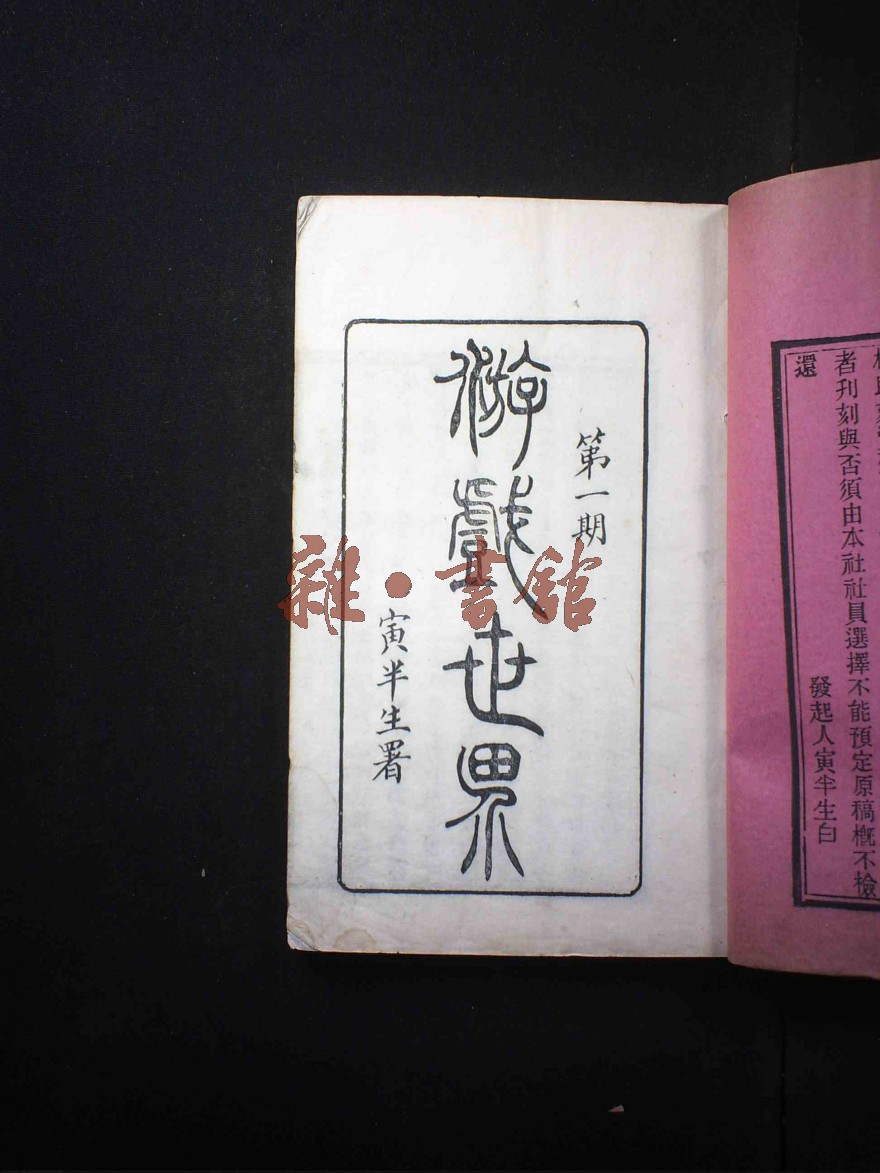 者刊刻與否須由本社社員選擇不能預定原稿概不檢
還
發起人寅半生白
第一期
游戲世界
寅半生署
雜·書館